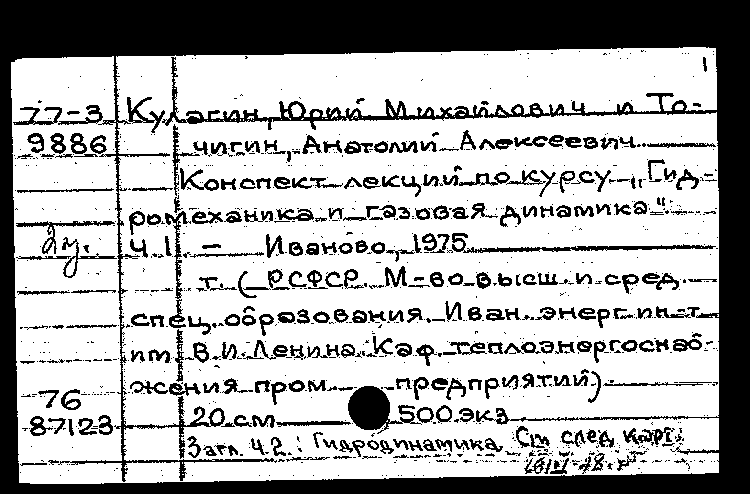 1
77-3 Кулагин, Юрий Михайлович и То-
9886 чигин, Анатолий Алексеевич
Конспект лекций по курсу „Гид-
ромеханика и газовая динамика".
Ч. 1. - Иваново, 1975
т. (РСФСР. М-во высш. и сред.
спец. образования. Иван. энерг. ин-т
им. В.И. Ленина. Каф. теплоэнергоснаб-
жения пром. предприятий).
76 20 см 500 экз
87123
Загл. ч. 2.: Гидродинамика См след карт.